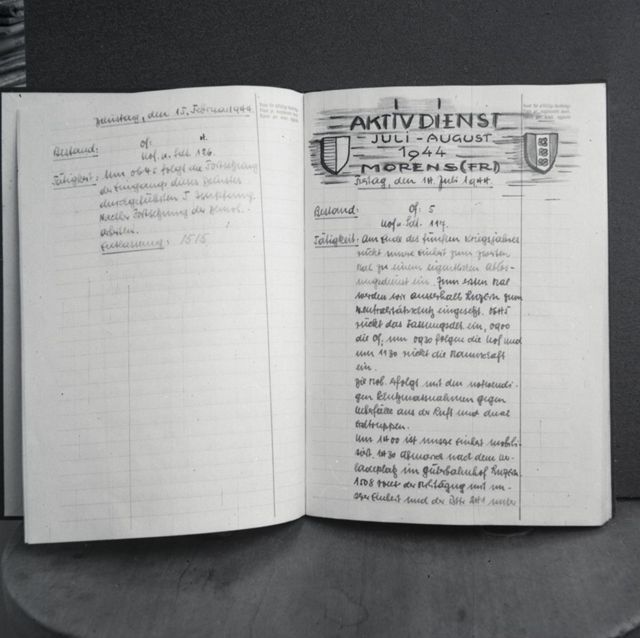 Dienstag, den 15. Februar 1944
Bestand: Of:
Uof. u. Sdt. 126.
Tätigkeit: Um 0645 folgt die Fortsetzung
der Eingangs dieses Dienstes
durchgeführten
Fortsetzung der Demob.
arbeiten.
Entlassung: 1515
AKTIVDIENST
JULI - AUGUST
1944
MORENS (FR)
Freitag, den 14. Juli 1944
Bestand: Of: 5
Uof u. Sdt. 117.
Tätigkeit: Am Ende des fünften Kriegsjahres
rückt unsere Einheit zum zweiten
Mal zu einem eigentlichen Ablös-
ungsdienst ein. Zum ersten Mal
werden wir ausserhalb Luzern zum
Neutralitätsschutz eingesetzt. 0645
rückt das Fassungsdet. ein, 0900
die Of; um 0930 folgen die Uof und
um 1130 rückt die Mannschaft
ein.
Die Mob. erfolgt mit den notwendi-
gen Schutzmassnahmen gegen
Ueberfälle aus der Luft und durch
Erdtruppen.
Um 1400 ist unsere Einheit mobili-
siert. 1430 Abmarsch nach dem Ver-
ladeplatz im Güterbahnhof Luzern.
1508 der Militärzug mit un-
serer Einheit und der unter